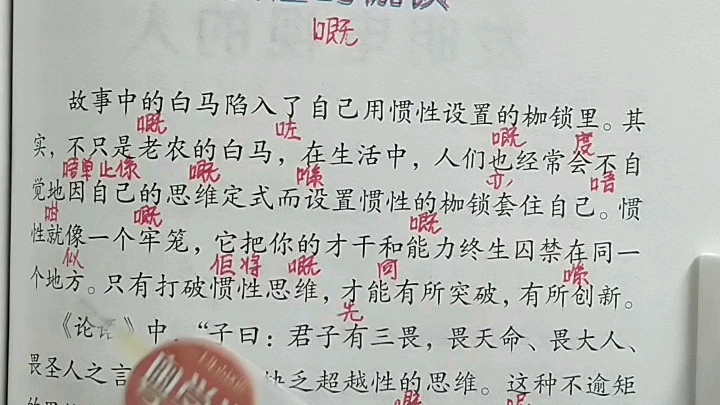 嘅
故事中的白马陷入了自己用惯性设置的枷锁里。其
嘅 咗 嘅 度
实，不只是老农的白马，在生活中，人们也经常会不自
唔单止係 嘅 喺 亦 唔
觉地因自己的思维定式而设置惯性的枷锁套住自己。惯
咁 嘅 嘅
性就像一个牢笼，它把你的才干和能力终生囚禁在同一
似 佢将 嘅 同 喺
个地方。只有打破惯性思维，才能有所突破，有所创新。
先
《论 》中，“子曰：君子有三畏，畏天命、畏大人、
畏圣人之言 乏超越性的思维。这种不逾矩